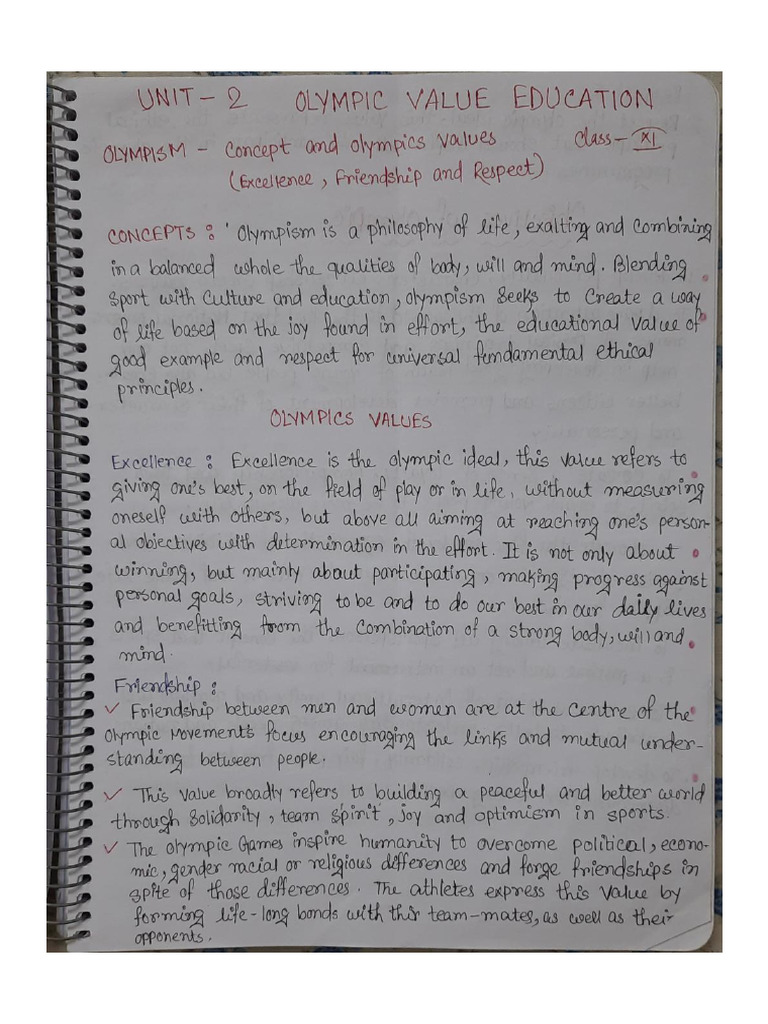 UNIT - 2 OLYMPIC VALUE EDUCATION
OLYMPISM - Concept and olympics values Class - XI
(Excellence, Friendship and Respect)
CONCEPTS : 'Olympism is a philosophy of life, exalting and combining
in a balanced whole the qualities of body, will and mind. Blending
sport with culture and education, olympism seeks to create a way
of life based on the joy found in effort, the educational value of
good example and respect for universal fundamental ethical
principles.
OLYMPICS VALUES
Excellence : Excellence is the olympic ideal, this value refers to
giving one's best, on the field of play or in life, without measuring
oneself with others, but above all aiming at reaching one's person-
al objectives with determination in the effort. It is not only about
winning, but mainly about participating, making progress against
personal goals, striving to be and to do our best in our daily lives
and benefitting from the combination of a strong body, will and
mind.
Friendship :
✓ Friendship between men and women are at the centre of the
Olympic Movement's focus encouraging the links and mutual under-
standing between people.
✓ This value broadly refers to building a peaceful and better world
through solidarity, team spirit, joy and optimism in sports.
✓ The olympic Games inspire humanity to overcome political, econo-
mic, gender racial or religious differences and forge friendships in
spite of those differences. The athletes express this value by
forming life-long bonds with this team-mates, as well as their
opponents.